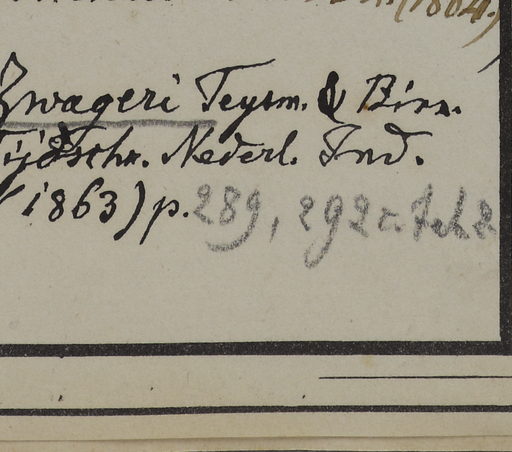 (1864.)
Zwageri Teysm. & Binn.
Tijdschr. Nederl. Ind.
(1863) p. 289, 292 c.